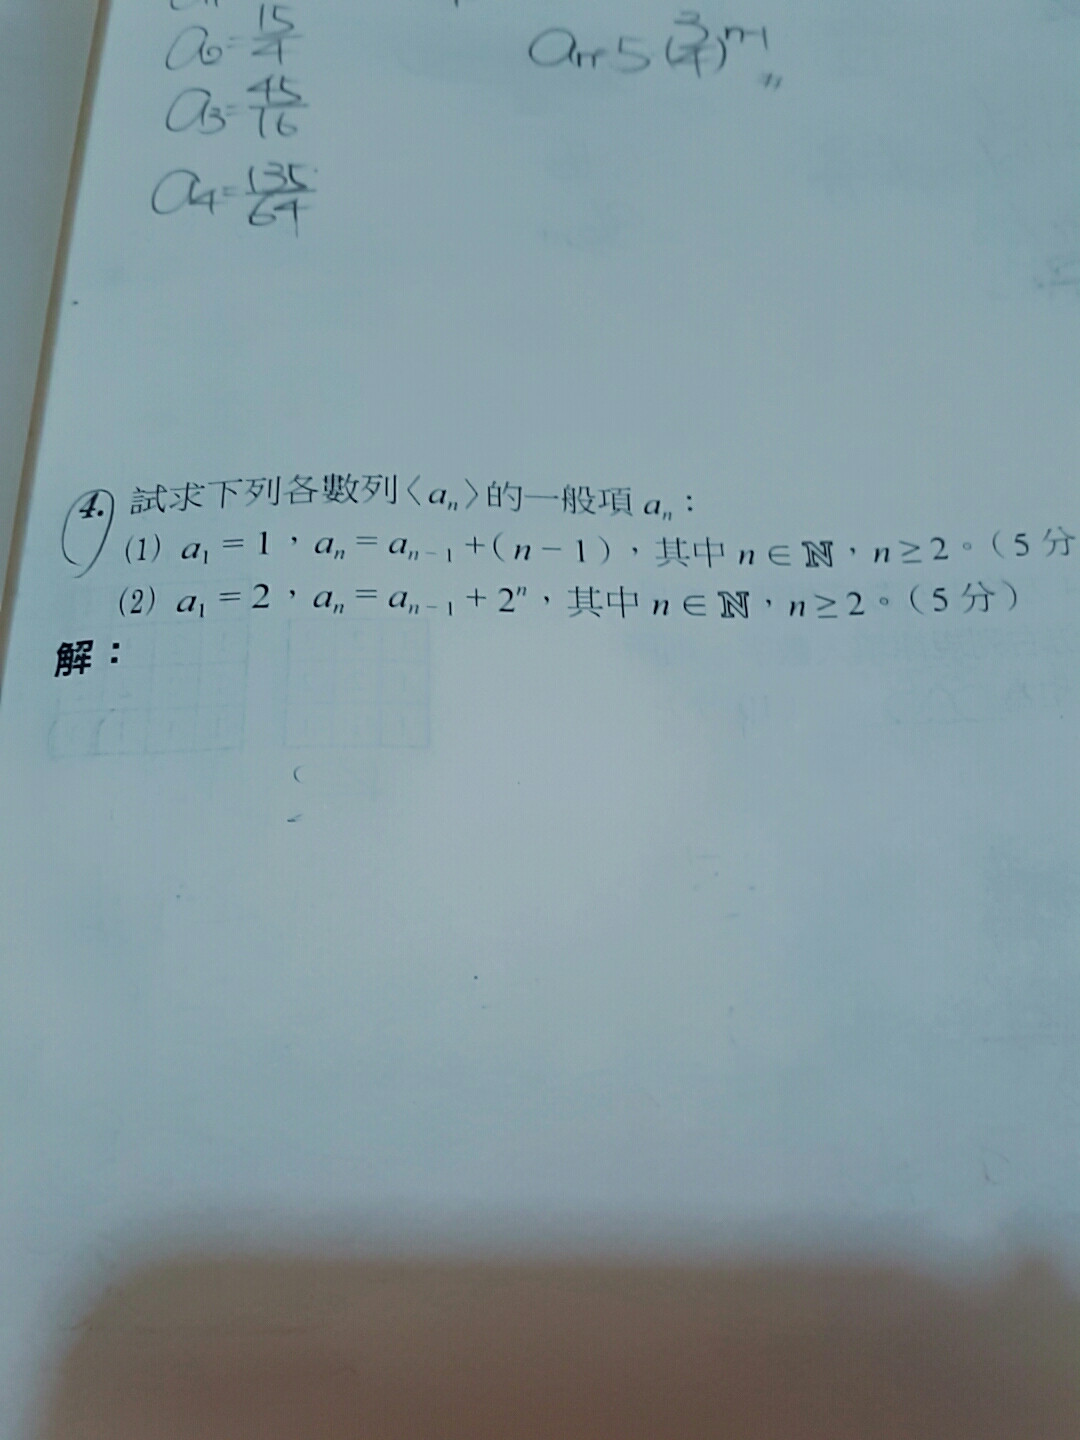 a₂=15/4
aₙ=5(3/4)ⁿ⁻¹
a₃=45/16
a₄=135/64
4. 試求下列各數列〈aₙ〉的一般項 aₙ：
(1) a₁ = 1，aₙ = aₙ₋₁ + (n − 1)，其中 n ∈ ℕ，n ≥ 2。（5 分
(2) a₁ = 2，aₙ = aₙ₋₁ + 2ⁿ，其中 n ∈ ℕ，n ≥ 2。（5 分）
解：